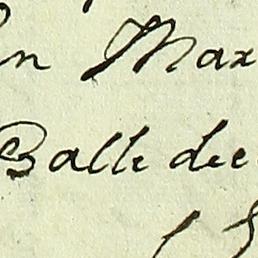 n Max
Balle dee